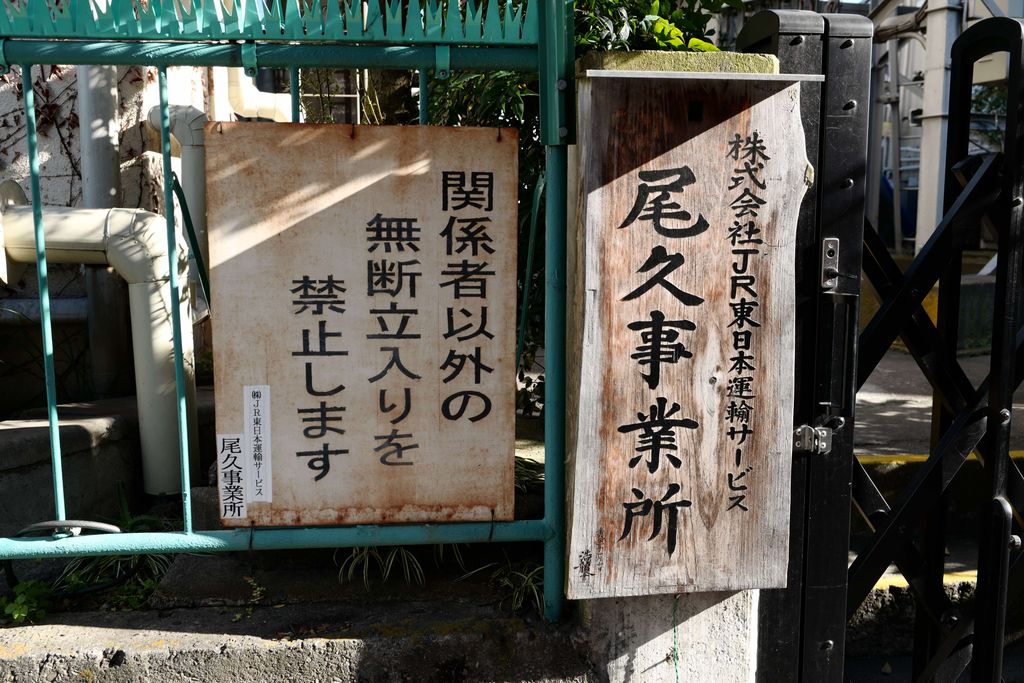 関係者以外の
無断立入りを
禁止します
㈱JR東日本運輸サービス
尾久事業所
株式会社JR東日本運輸サービス
尾久事業所